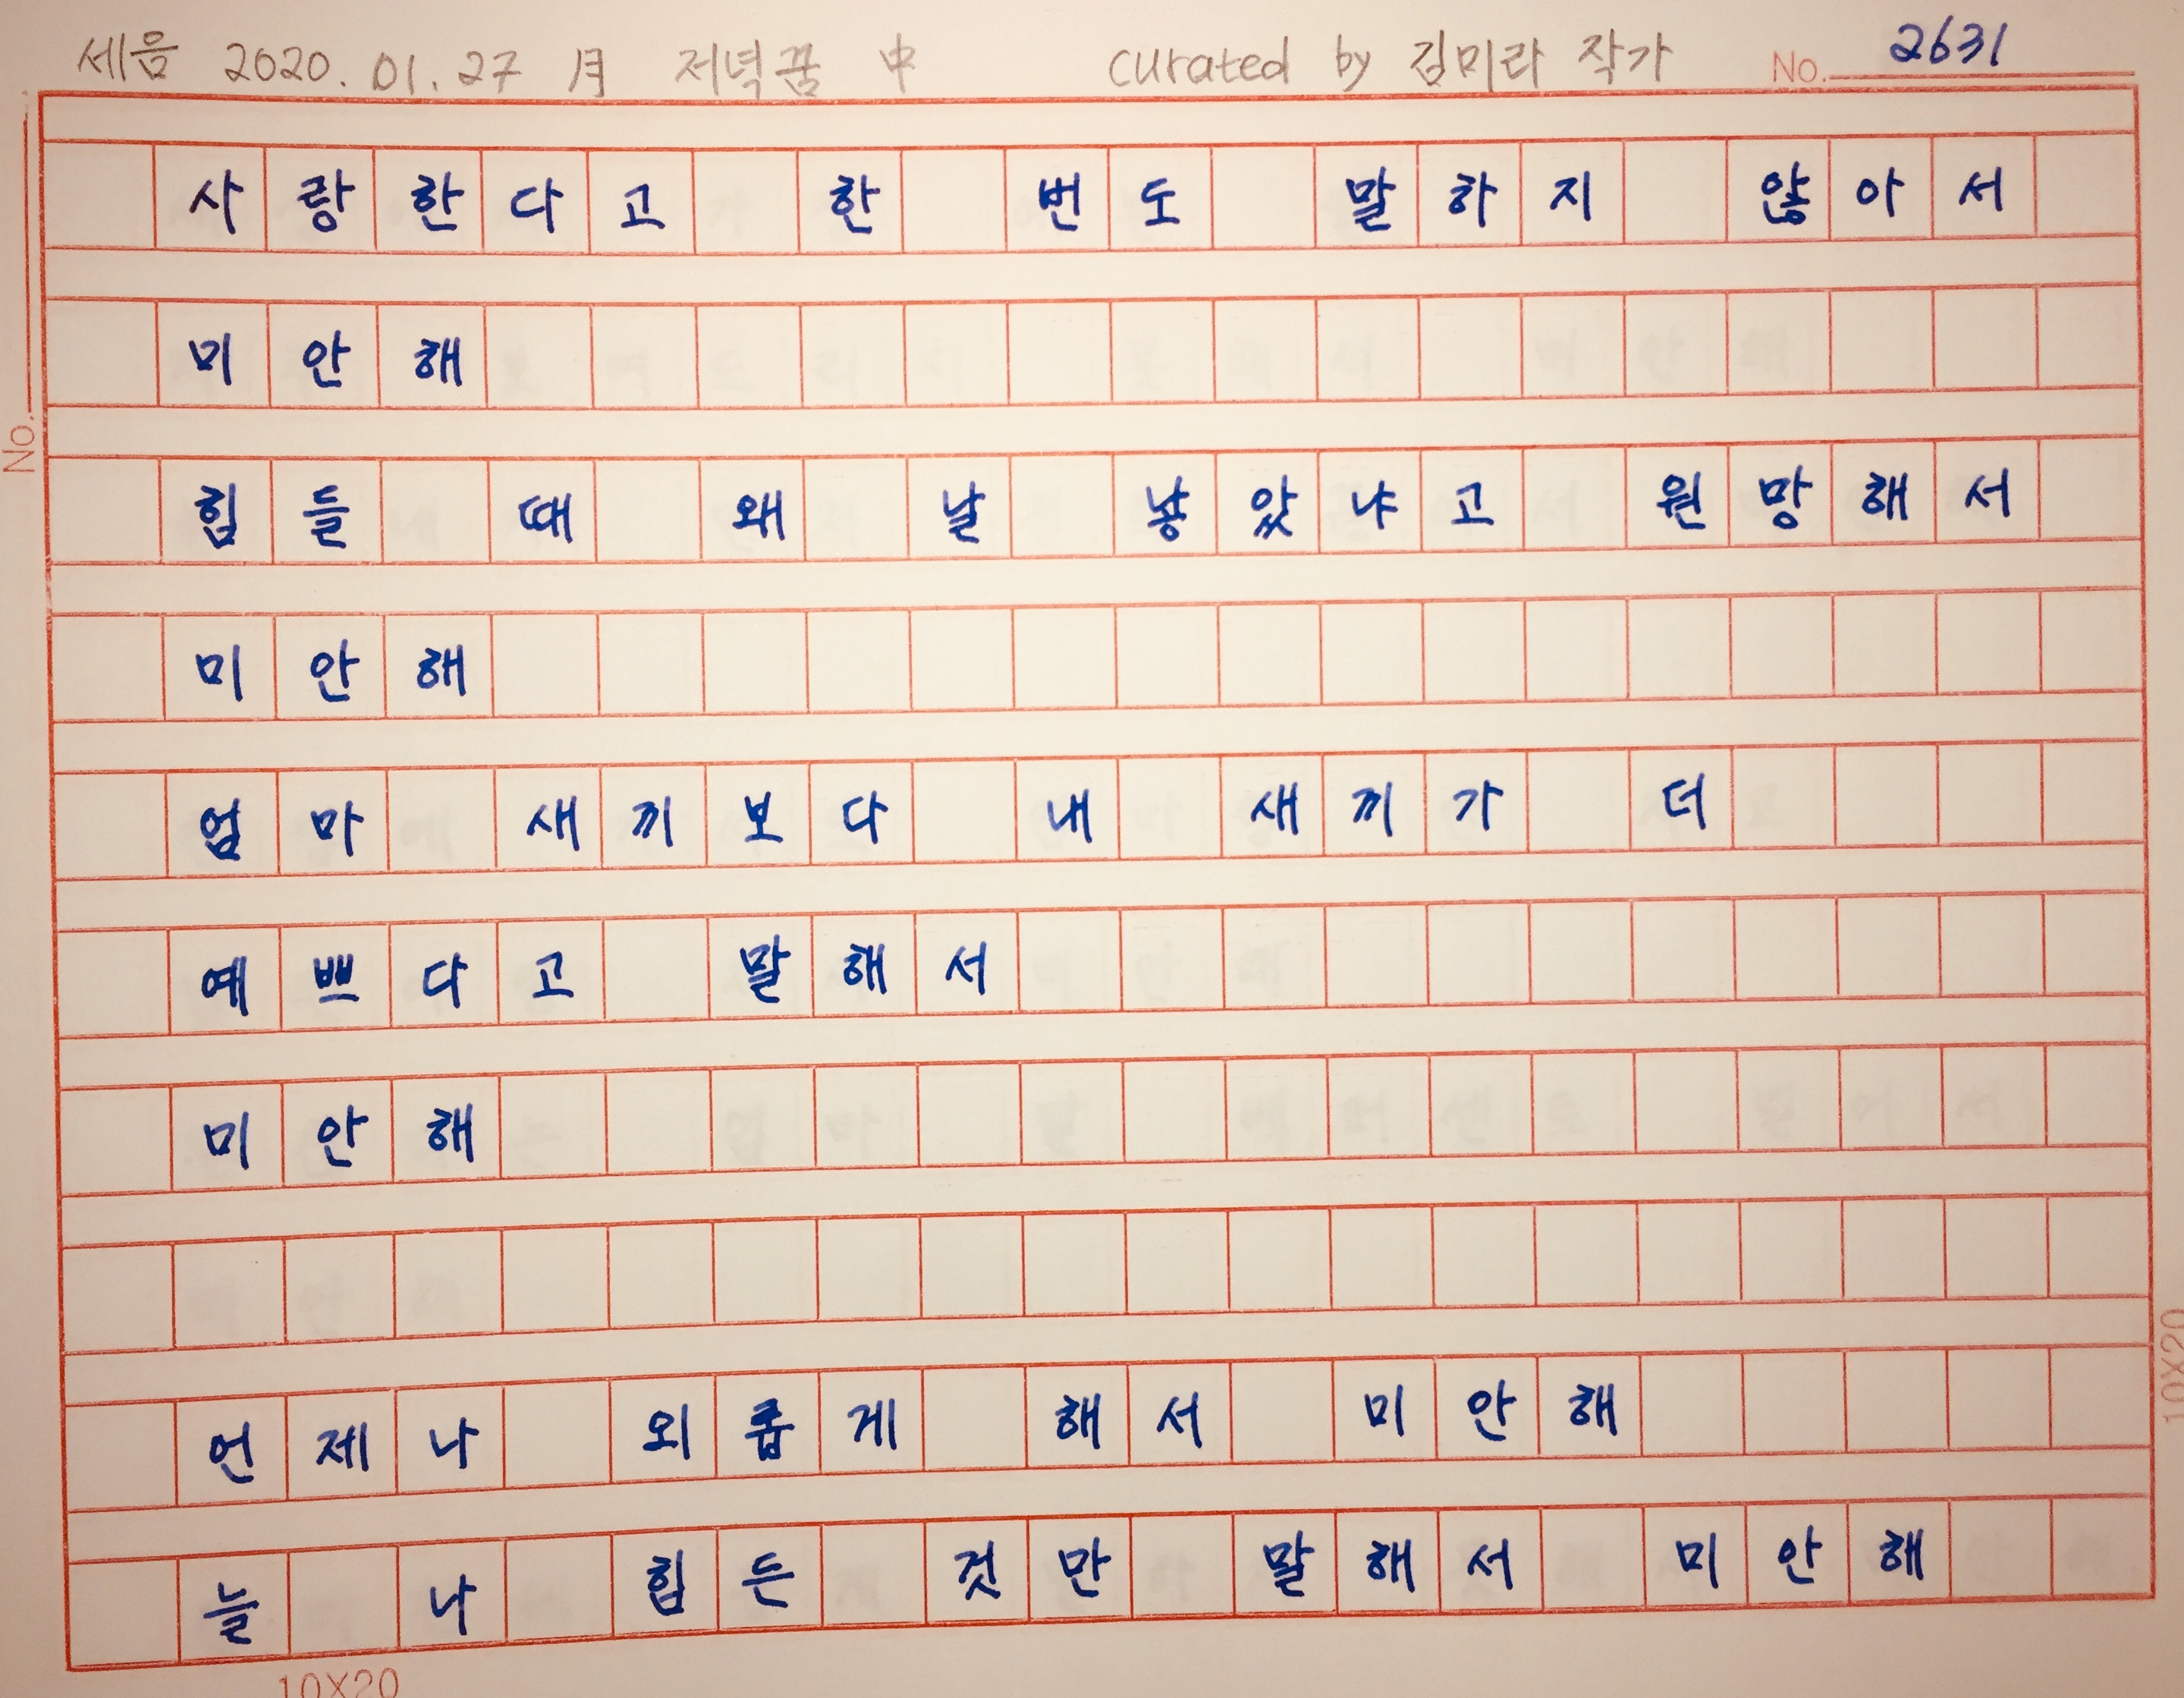 세음 2020. 01. 27 月 저녁꿈 中 curated by 김미라 작가 No. 2631
사랑한다고 한 번도 말하지 않아서
미안해
힘들 때 왜 날 낳았냐고 원망해서
미안해
엄마 새끼보다 내 새끼가 더
예쁘다고 말해서
미안해
언제나 외롭게 해서 미안해
늘 나 힘든 것만 말해서 미안해
No.
10X20
10X20